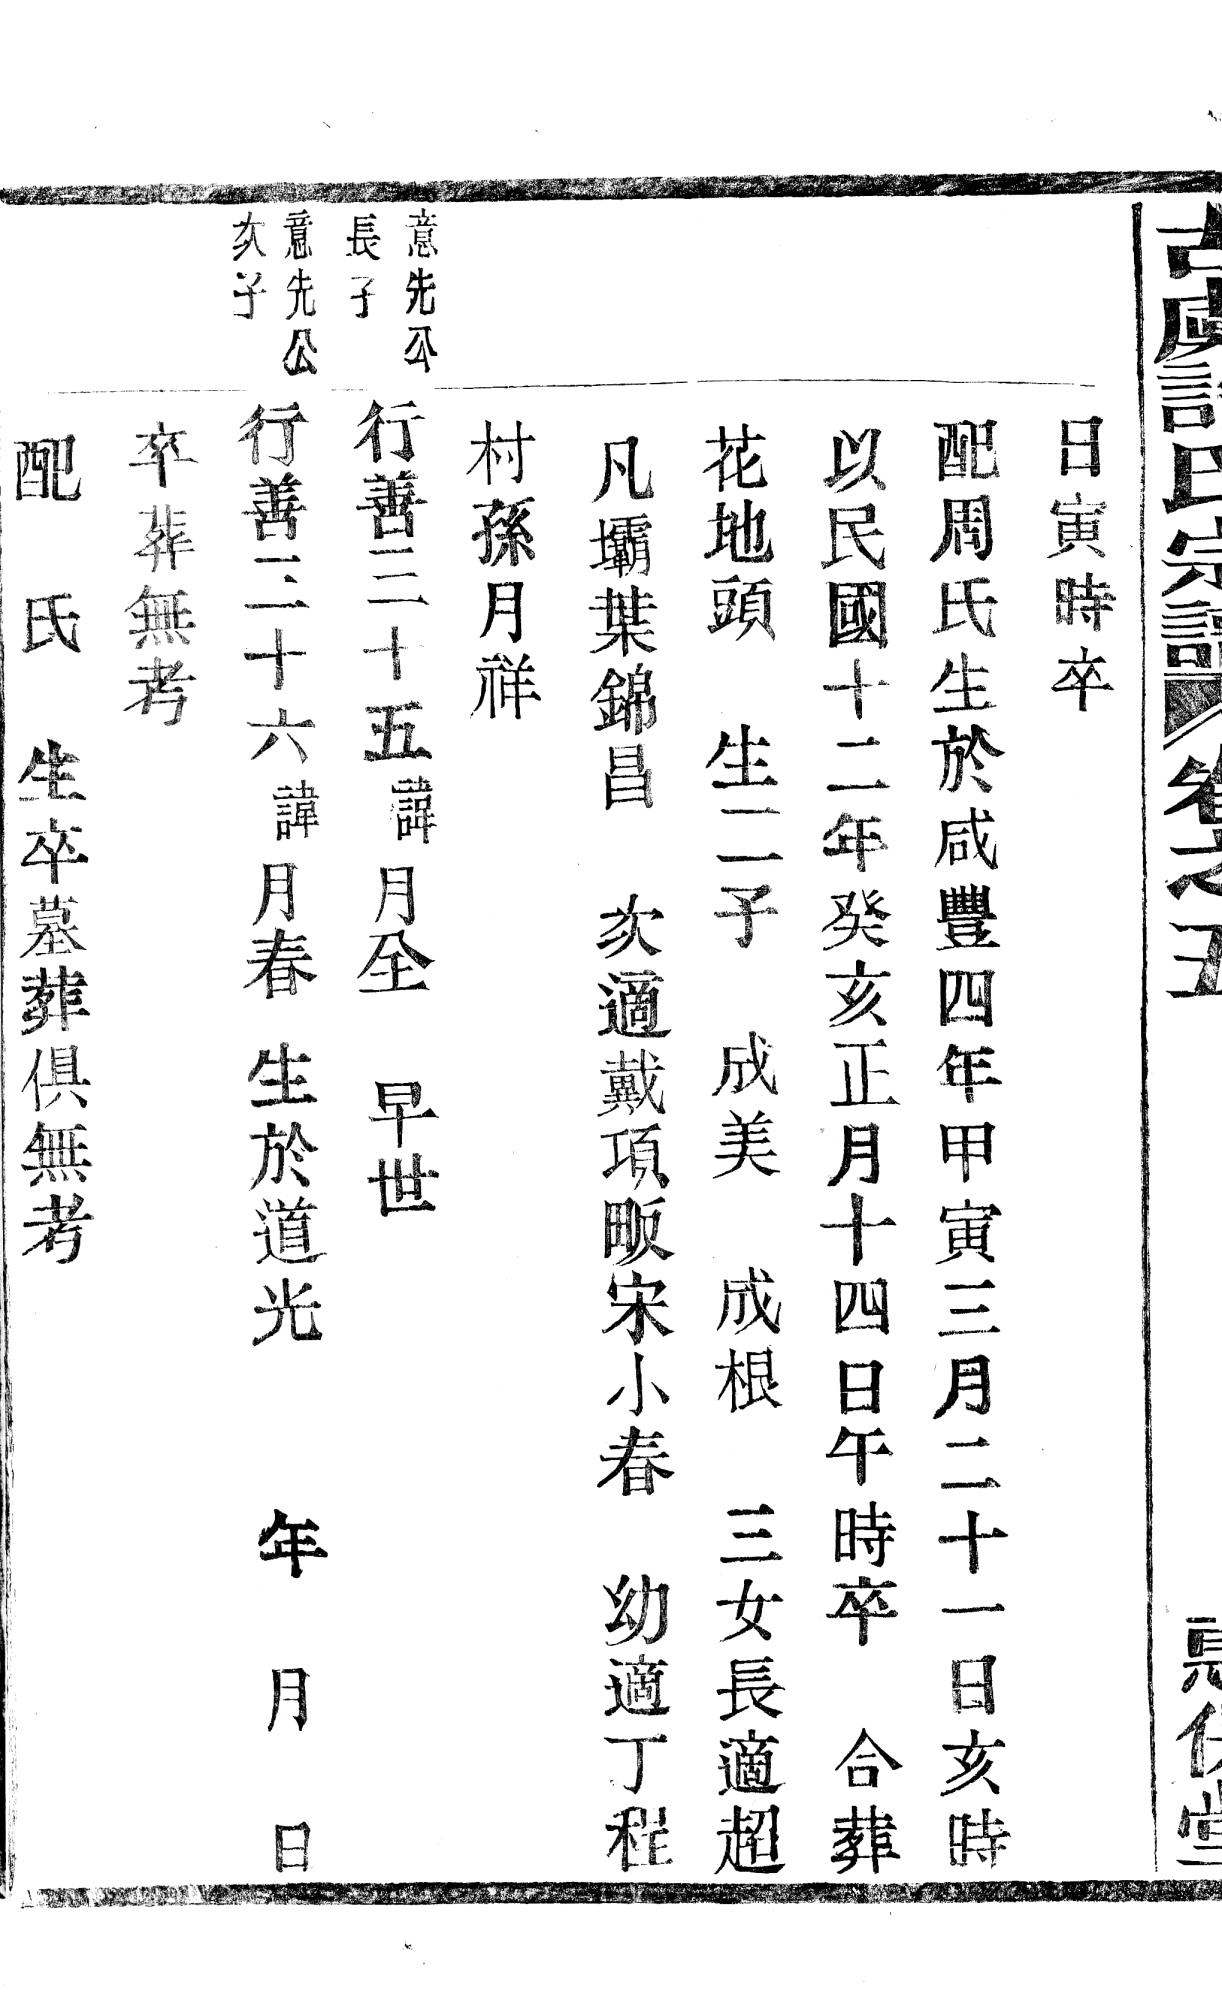 古虞許氏宗譜 卷之五
惇堂
日寅時卒
配周氏生於咸豐四年甲寅三月二十一日亥時
以民國十二年癸亥正月十四日午時卒 合葬
花地頭 生二子 成美 成根 三女長適超
凡壩葉錦昌 次適戴項畈宋小春 幼適丁程
村孫月祥
意先公
長子
行善三十五諱月全 早世
意先公
次子
行善三十六諱月春 生於道光 年 月 日
卒葬無考
配 氏 生卒墓葬俱無考